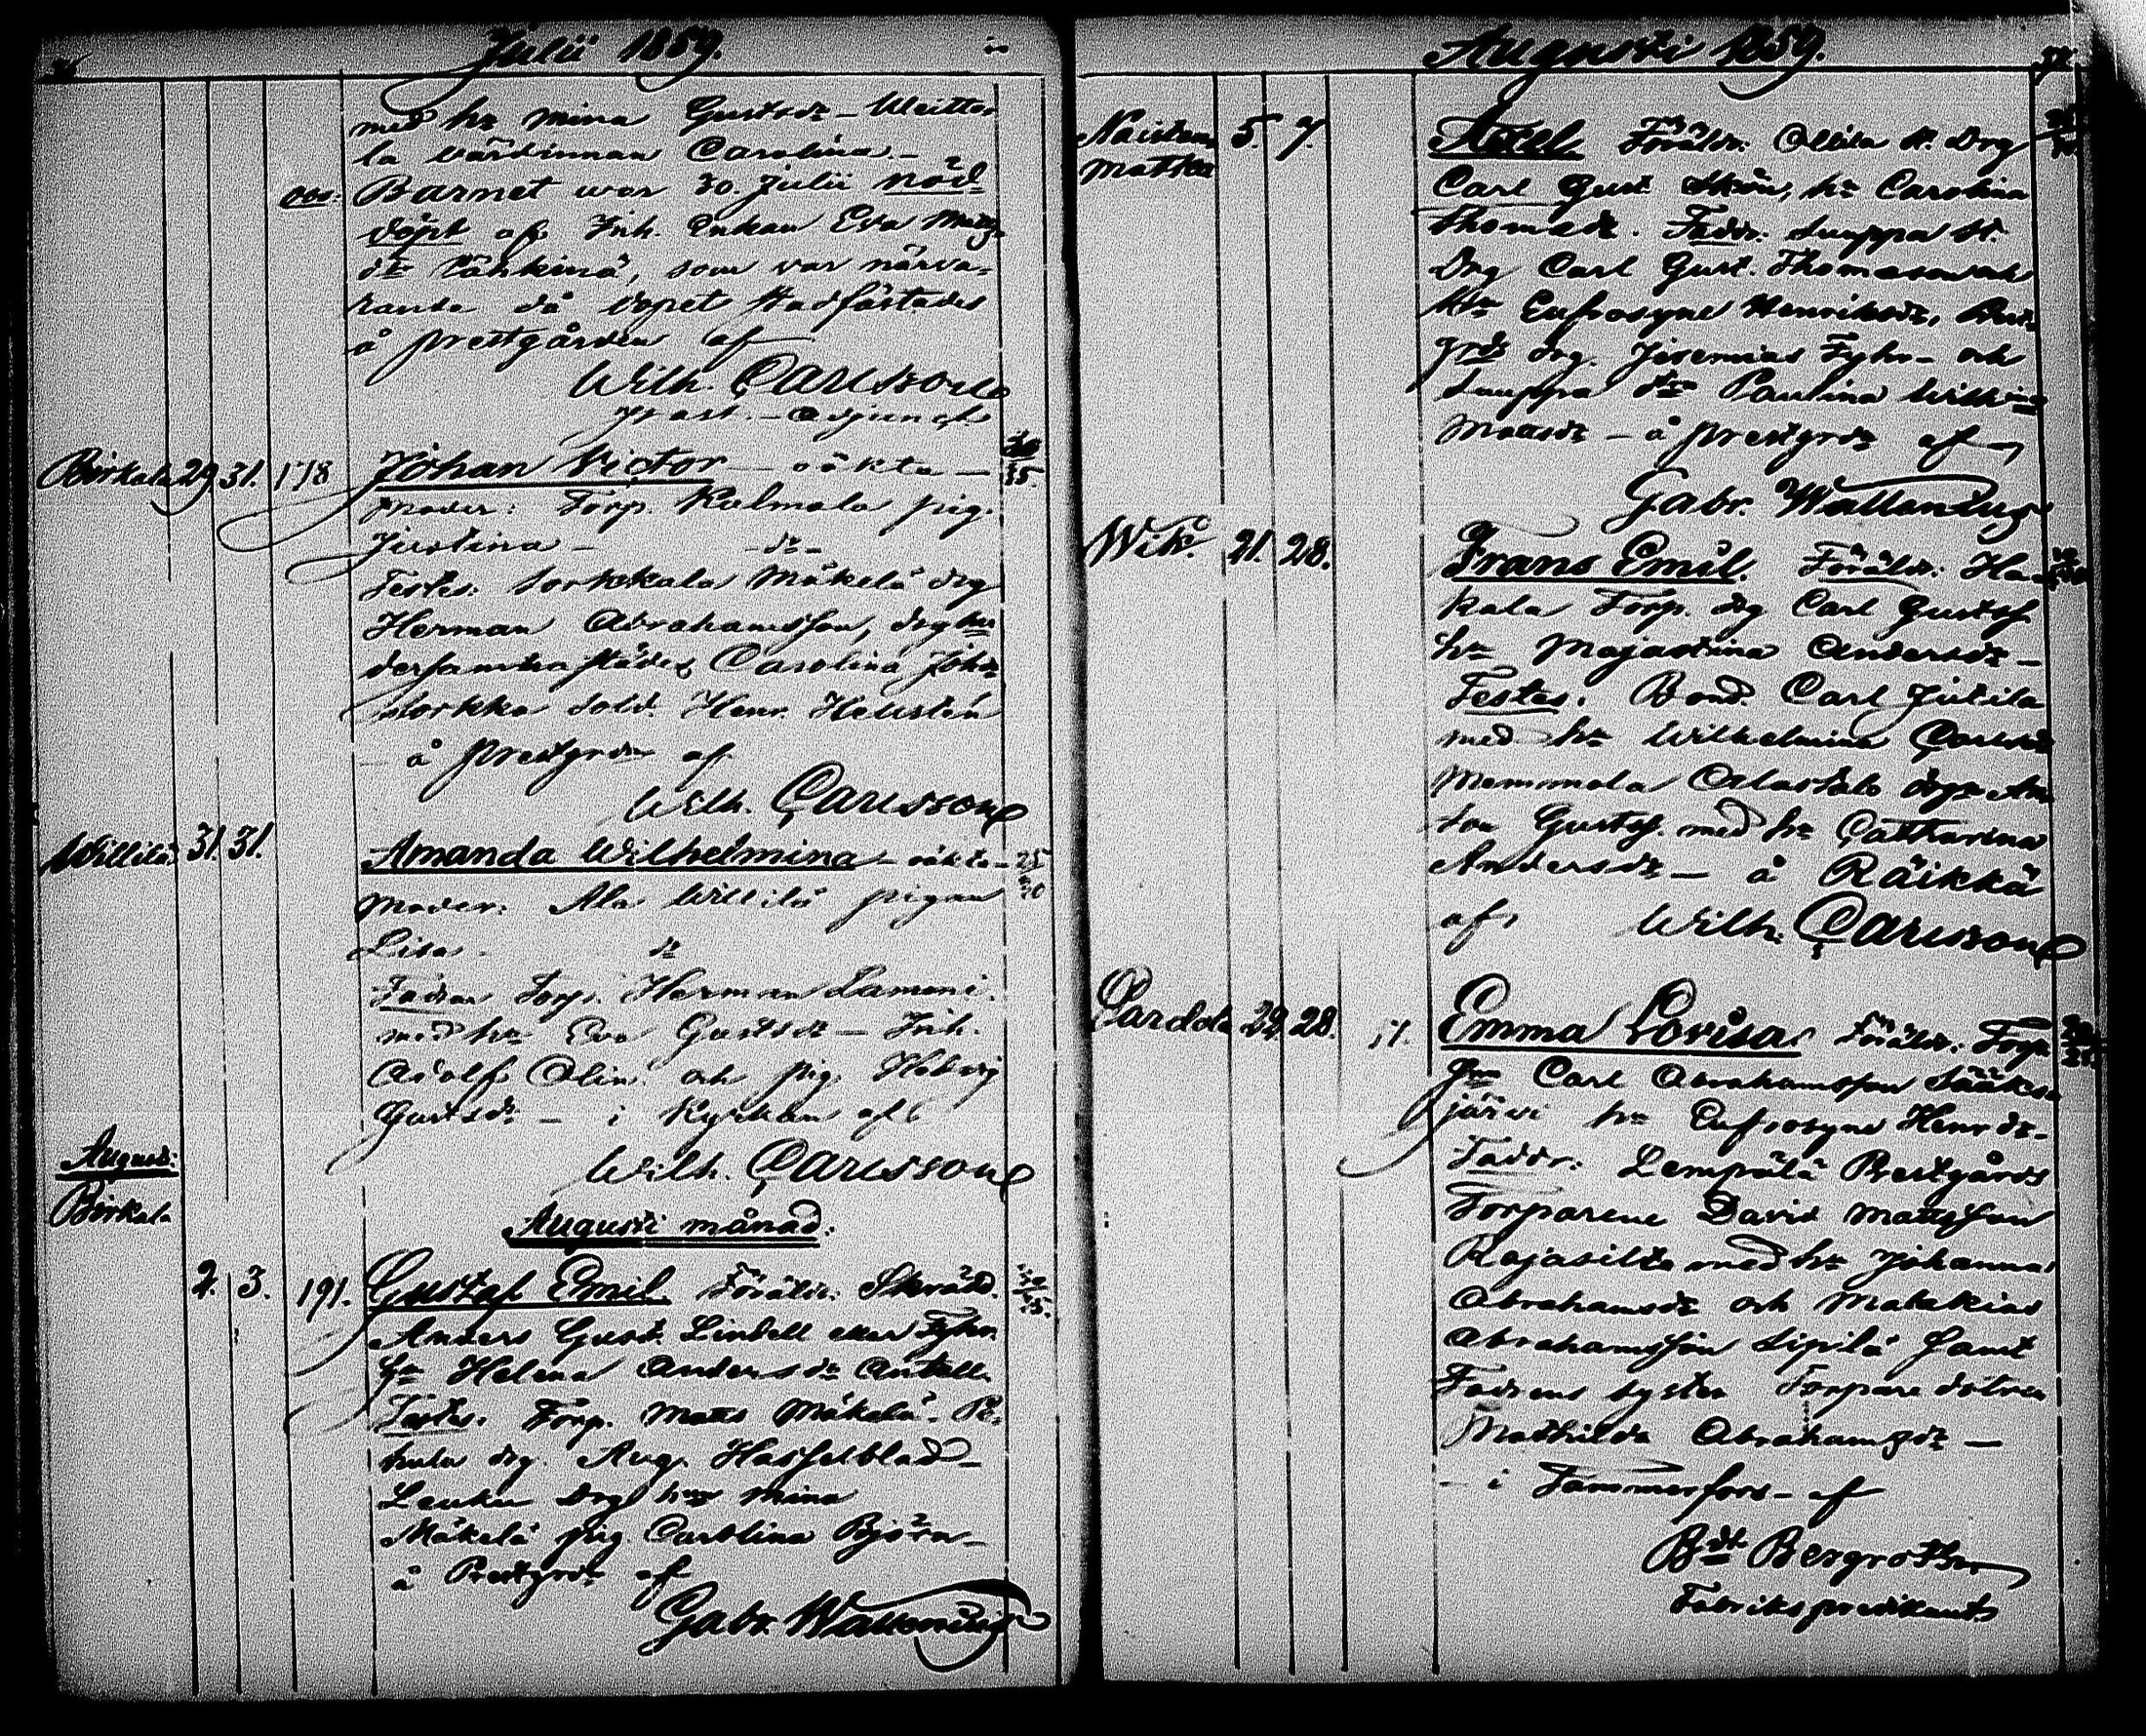 Julii 1859.
med hu Mina Gustsdr – Weitto
la värdinnan Carolina. –
obs: Barnet war 30. Julii nöd-
döpt af Inh. Enkan Eva Matts
dr Lähkinä, som var närva-
rande då dopet stadfästades
å prestgården af
Wilh. Carlsson
past. – adjunct.
Birkala 29 31. 178 Johan Victor – oäkta – 35.
Moder: Torp. Kulmala pig.
Justina – dr –
Testes: Sorkkala Mäkelä drg
Herman Abrahamsson, drg hu
dersammastädes Carolina Joh
Sorkka Sold. Henr. Hellstén
– å prestgrdn af
Wilh. Carlsson
Willilä 31. 31. Amanda Wilhelmina – oäkta – 25
Moder: Ala Willilä pigan
Lisa dr
Faddrar Torp. Herman Lammi.
med hu Eva Gustsdr – Inh.
Adolf Olin och pig. Hedvig
Gustsdr – i Kyrkan af
Wilh. Carlsson
August:
Birkala
Augusti månad.
2. 3. 191. Gustaf Emil. Föräldr. Skrädd.
Anders Gust. Lindell eller Fyhr
hu Helena Andersdr Antell.
Testes. Torp. Matts Mäkelä. Pe-
hula drg. Aug. Hasselblad –
Leuku drg hun Mina
Mäkelä pig. Carolina Björn –
å Prestgrdn af
Gabr. Wallenius
Augusti 1859.
Naisten 5. 7. Axel. Föräldr. Ollila st. drg
matka
Carl Gust. hu Carolina
Thomsdr. Faddr. Suuppa st.
drg Carl Gust. Thomasson
hu Eufrosyne Henriksdr,
drg. Jeremias Fyhr – och
Suuppa Paulina Wilhina
Mattsdr – å prestgrdn af
Gabr. Wallenius
Wik. 21. 28. Frans Emil. Föräldr: Han
kala Torp. drg Carl Gustaf
hu Majastina Andersdr –
Testes. Bond. Carl Jutila
med hu Wilhelmina Carlsdr
Memmola Alastalo drgn An
ton Gustaf. med hu Catharina
Andersdr – å Räikkä
af Wilh. Carlsson
Sardola 22 28. 51. Emma Lovisa. Föräldr: Torp
Carl Abrahamsson Sääks
järvi hu Eufrosyne Henrdr –
Faddr: Lempälä Prestgårds
Torparene David Mattsson
Rajasilta med hu Johanna
Abrahamsdr och Malakias
Abrahamsson Sipilä samt
Fadrens syster Torpare dottren
Mathilda Abrahamsdr –
– i Tammerfors – af
Bdt Bergroth
Fabriks predikant